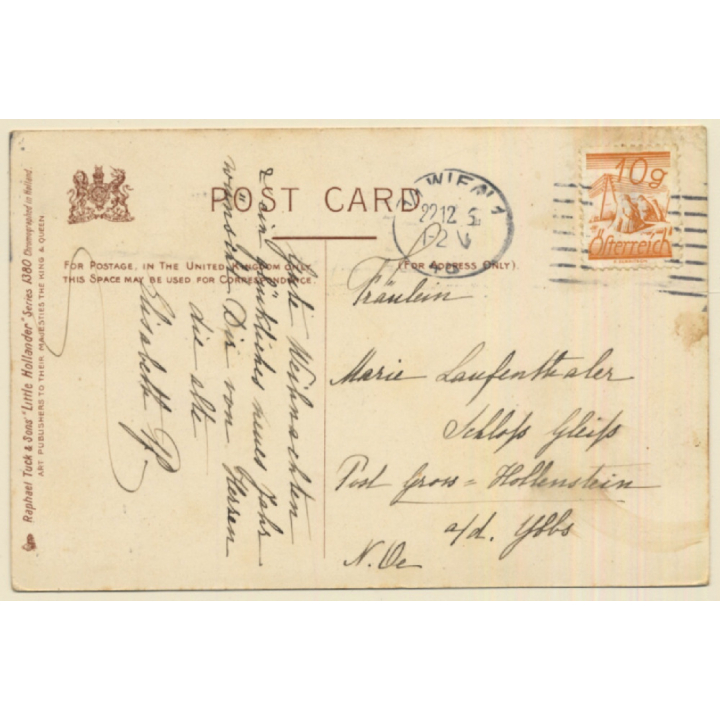 Raphael Tuck & Sons' "Little Hollander" Series 1380 Chromographed in Holland.
ART PUBLISHERS TO THEIR MAJESTIES THE KING & QUEEN
POST CARD
FOR POSTAGE, IN THE UNITED KINGDOM ONLY,
THIS SPACE MAY BE USED FOR CORRESPONDENCE.
(FOR ADDRESS ONLY).
WIEN 1
22 12
1-2
10g
Österreich
Weihnachten
neues Jahr
wünscht Dir von Herzen
die alte
Elisabeth
Fräulein
Marie Laufenthaler
Schloß Gleiß
Post Gross=Hollenstein
a/d. Ybbs
N. Oe